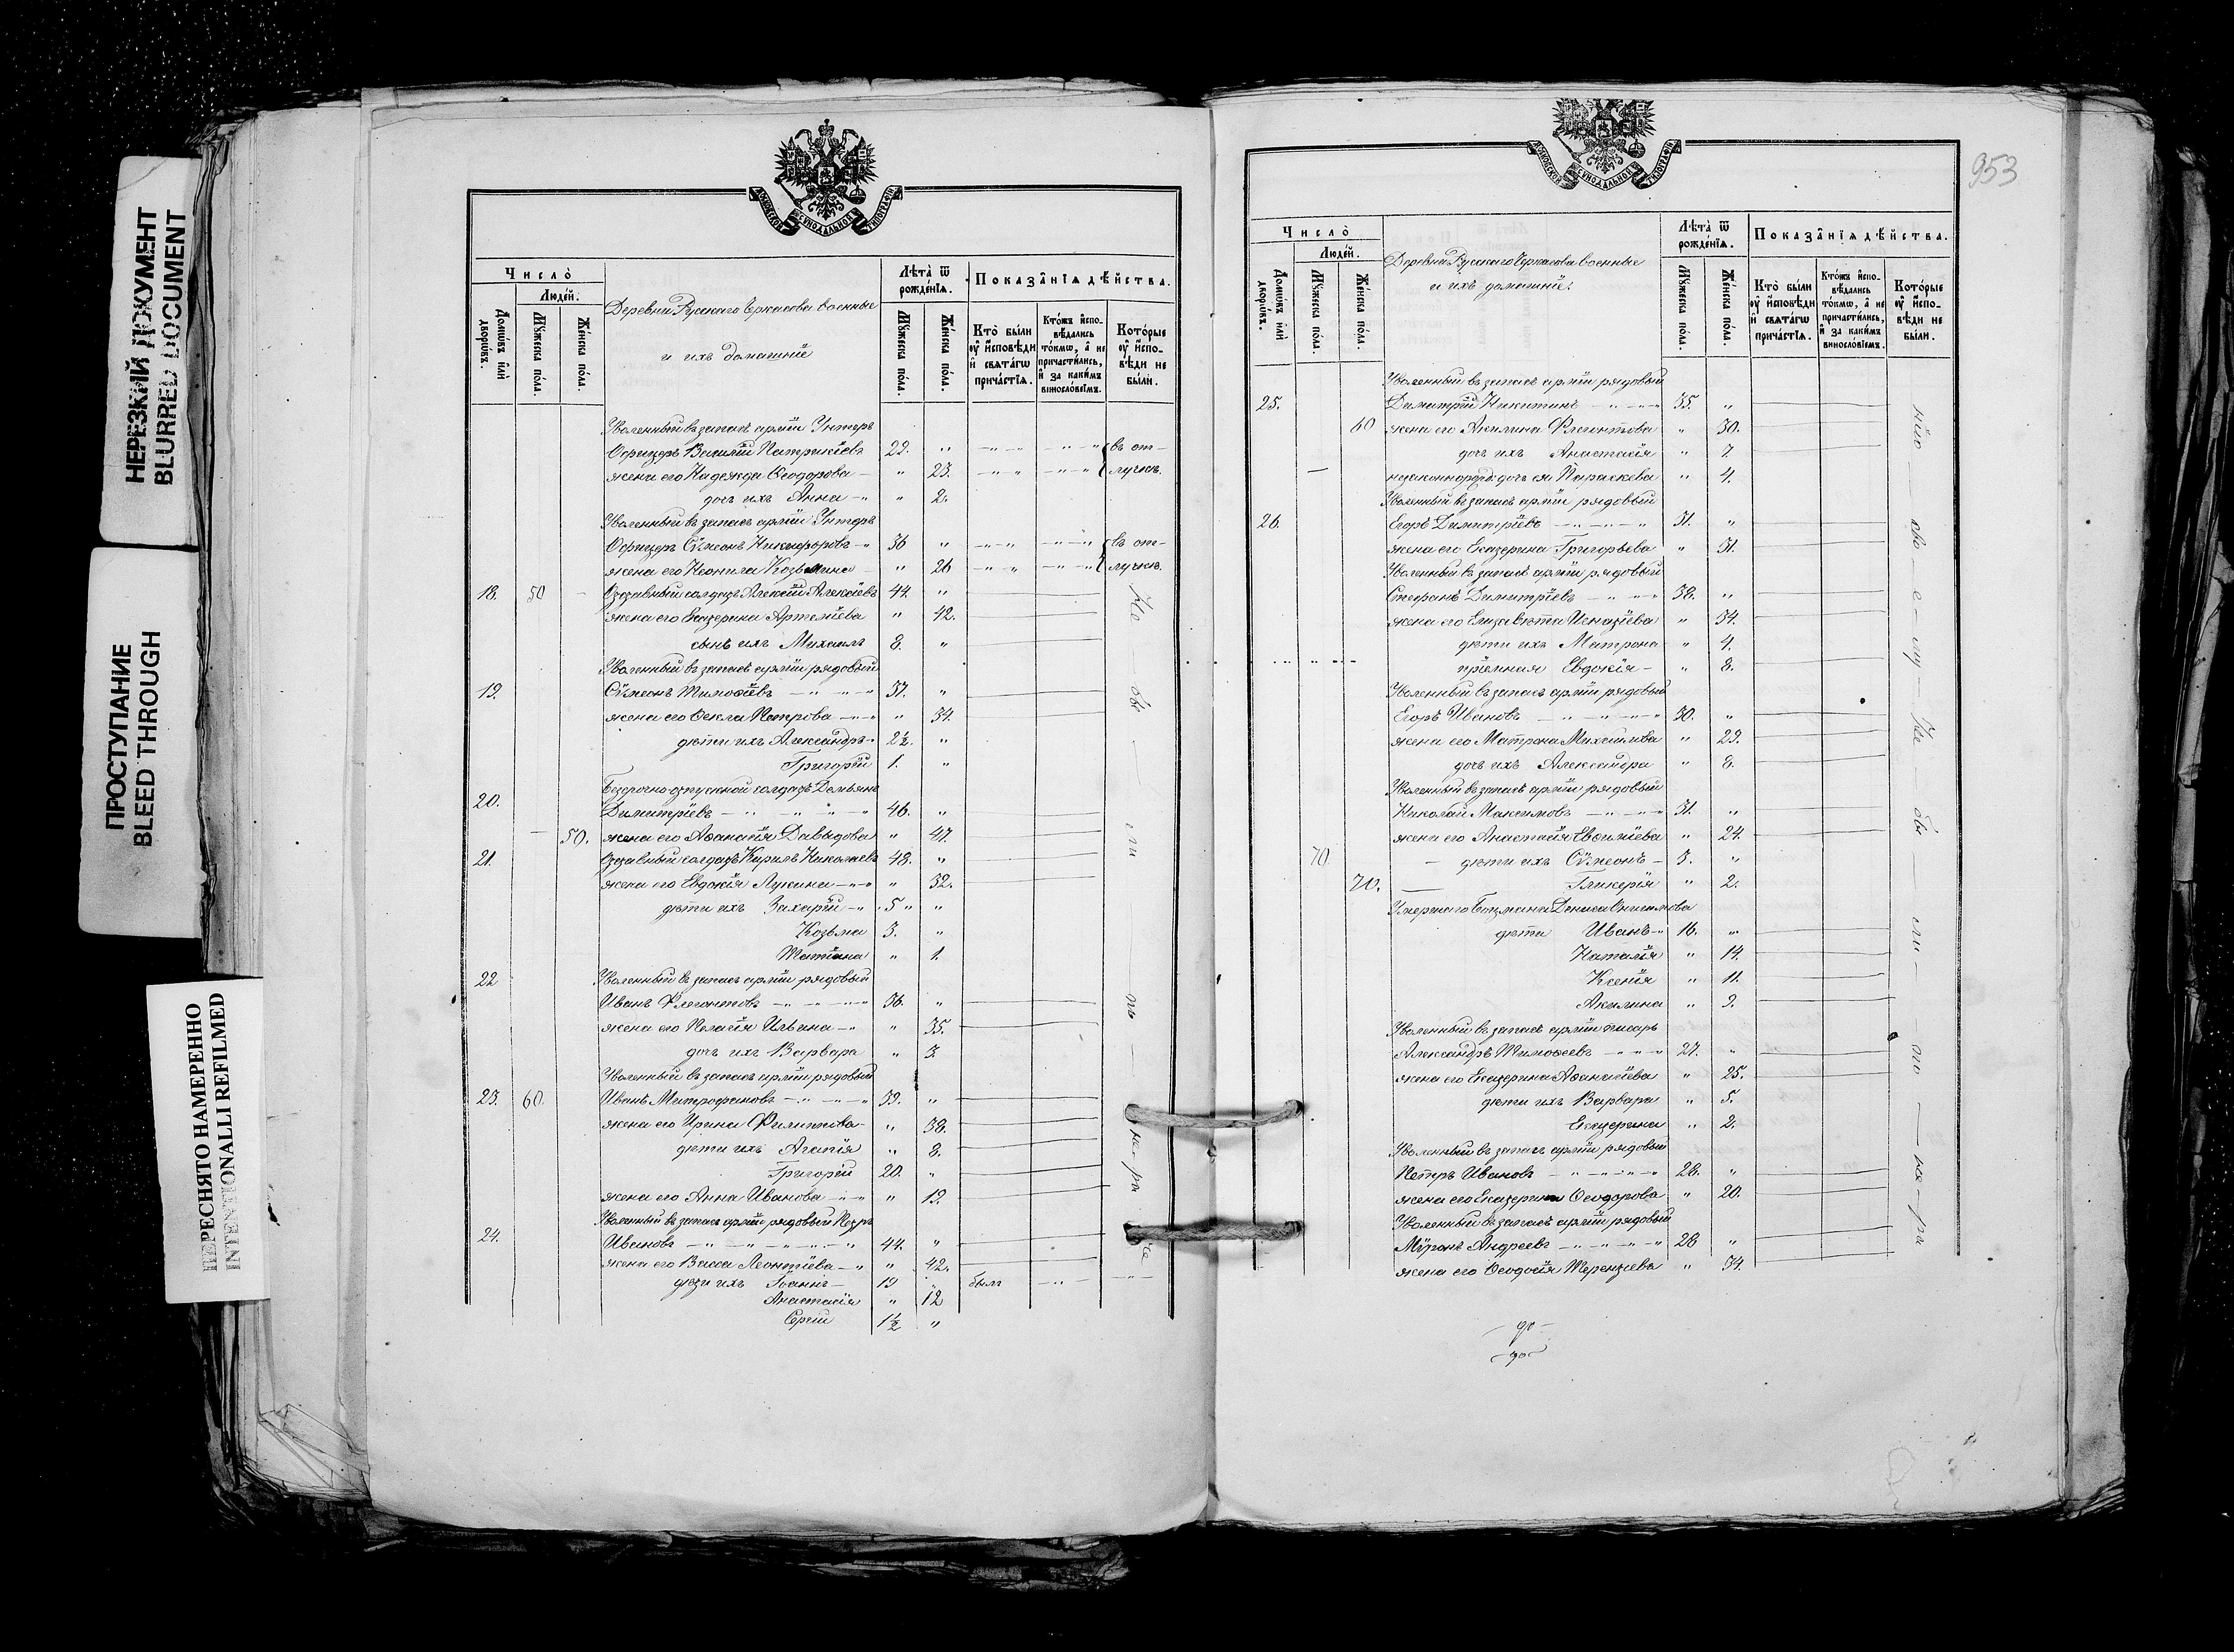 НЕРЕЗКИЙ ДОКУМЕНТ
BLURRED DOCUMENT
ПРОСТУПАНИЕ
BLEED THROUGH
ПЕРЕСНЯТО НАМЕРЕННО
INTENTIONALLI REFILMED
МОСКОВСКОЙ СѴНОДАЛЬНОЙ ТИПОГРАФІИ
Число̀
Люде́й.
Домѡ́въ и҆лѝ дворѡ́въ.
Мꙋ́жеска по́ла.
Же́нска по́ла.
Деревни Русскаго Черкасова военные
и ихъ домашніе
Лѣ́та ѿ рожде́нїѧ.
Мꙋ́жеска по́ла.
Же́нска по́ла.
Показа̑нїѧ дѣ́йства.
Кто̀ бы́ли ᲂу҆ и҆сповѣ́ди и҆ свѧта́гѡ прича́стїѧ.
Кто́жъ и҆сповѣ́дались то́кмѡ, а҆ не причасти́лись, и҆ за каки́мъ виносло́вїемъ.
Кото́рые ᲂу҆ и҆сповѣ́ди не бы́ли.
Уволенный въ запасъ арміи Унтеръ
Офицеръ Василій Патрикіевъ 22. " въ от-
жена его Надежда Ѳеодорова " 23. лучкѣ.
дочь ихъ Анна " 2.
Уволенный въ запасъ арміи Унтеръ
Офицеръ Сѵмеонъ Никифоровъ 36 " въ от-
жена его Неонила Козьмина " 26 лучкѣ.
18. 50 Отставный солдатъ Алексій Алексіевъ 44. "
жена его Екатерина Артеміева " 42.
сынъ ихъ Михаилъ 8. "
Уволенный въ запасъ арміи рядовый
19. Сѵмеонъ Тимоѳіевъ 37. "
жена его Ѳекла Петрова " 34.
дѣти ихъ Александръ 2½. "
Григорій 1. "
Безсрочно-отпускной солдатъ Демьянъ
20. Димитріевъ 46. "
50. жена его Аѳанасія Давыдова " 47.
21. Отставный солдатъ Кирилъ Николаевъ 48. "
жена его Евдокія Лукина " 32.
дѣти ихъ Захарій 5 "
Козьма 3. "
Татіана " 1.
22 Уволенный въ запасъ арміи рядовый
Иванъ Флегонтовъ 36. "
жена его Пелагія Ильина " 35.
дочь ихъ Варвара " 3.
Уволенный въ запасъ арміи рядовый
23. 60. Иванъ Митрофановъ 39. "
жена его Ирина Филиппова " 38.
дѣти ихъ Агапія " 8.
Григорій 20. "
жена его Анна Иванова " 19.
Уволенный въ запасъ арміи рядовый Петръ
24. Ивановъ 44. "
жена его Васса Леонтіева " 42.
дѣти ихъ Іоаннъ 19 " былъ
Анастасія " 12
Сергій 1½ "
953
МОСКОВСКОЙ СѴНОДАЛЬНОЙ ТИПОГРАФІИ
Число̀
Люде́й.
Домѡ́въ и҆лѝ дворѡ́въ.
Мꙋ́жеска по́ла.
Же́нска по́ла.
Деревни Русскаго Черкасова военные
и ихъ домашніе.
Лѣ́та ѿ рожде́нїѧ.
Мꙋ́жеска по́ла.
Же́нска по́ла.
Показа̑нїѧ дѣ́йства.
Кто̀ бы́ли ᲂу҆ и҆сповѣ́ди и҆ свѧта́гѡ прича́стїѧ.
Кто́жъ и҆сповѣ́дались то́кмѡ, а҆ не причасти́лись, и҆ за каки́мъ виносло́вїемъ.
Кото́рые ᲂу҆ и҆сповѣ́ди не бы́ли.
Уволенный въ запасъ арміи рядовый
25. Димитрій Никитинъ 35. "
60 жена его Акилина Флегонтова " 30.
дочь ихъ Анастасія " 7.
незаконнорожд: дочь ея Параскева " 4.
Уволенный въ запасъ арміи рядовый
26. Егоръ Димитріевъ 31. "
жена его Екатерина Григорьева " 31.
Уволенный въ запасъ арміи рядовый
Стефанъ Димитріевъ 38. "
жена его Елизавета Игнатіева " 34.
дѣти ихъ Матрона " 4.
пріемная Евдокія " 8.
Уволенный въ запасъ арміи рядовый
Егоръ Ивановъ 30. "
жена его Матрона Михайлова " 29.
дочь ихъ Александра " 8.
Уволенный въ запасъ арміи рядовый
Николай Максимовъ 31. "
жена его Анастасія Евѳиміева " 24.
70 дѣти ихъ Сѵмеонъ 3. "
70. Гликерія " 2.
Умершаго Боцмана Дениса Онисимова
дѣти Иванъ 16. "
Наталія " 14.
Ксенія " 11.
Акилина " 9.
Уволенный въ запасъ арміи писарь
Александръ Тимоѳеевъ 27. "
жена его Екатерина Аѳанасіева " 25.
дѣти ихъ Варвара " 5.
Екатерина " 2.
Уволенный въ запасъ арміи рядовый
Петръ Ивановъ 28. "
жена его Екатерина Ѳеодорова " 20.
Уволенный въ запасъ арміи рядовый
Мѵронъ Андреевъ 28 "
жена его Ѳеодосія Терентіева " 34.